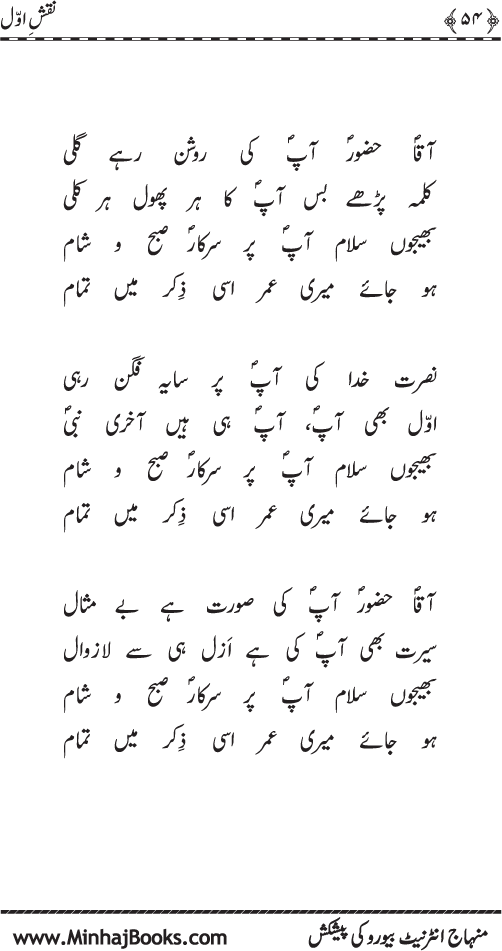 نقشِ اوّل
﴿۵۴﴾
آقاؐ حضورؐ آپؐ کی روشن رہے گلی
کلمہ پڑھے بس آپؐ کا ہر پھول ہر کلی
بھیجوں سلام آپؐ پر سرکارؐ صبح و شام
ہو جائے میری عمر اسی ذِکر میں تمام
نصرت خدا کی آپؐ پر سایہ فَگن رہی
اوّل بھی آپؐ، آپؐ ہی ہیں آخری نبیؐ
بھیجوں سلام آپؐ پر سرکارؐ صبح و شام
ہو جائے میری عمر اسی ذِکر میں تمام
آقاؐ حضورؐ آپؐ کی صورت ہے بے مثال
سیرت بھی آپؐ کی ہے اَزل ہی سے لازوال
بھیجوں سلام آپؐ پر سرکارؐ صبح و شام
ہو جائے میری عمر اسی ذِکر میں تمام
منہاج انٹرنیٹ بیورو کی پیشکش
www.MinhajBooks.com